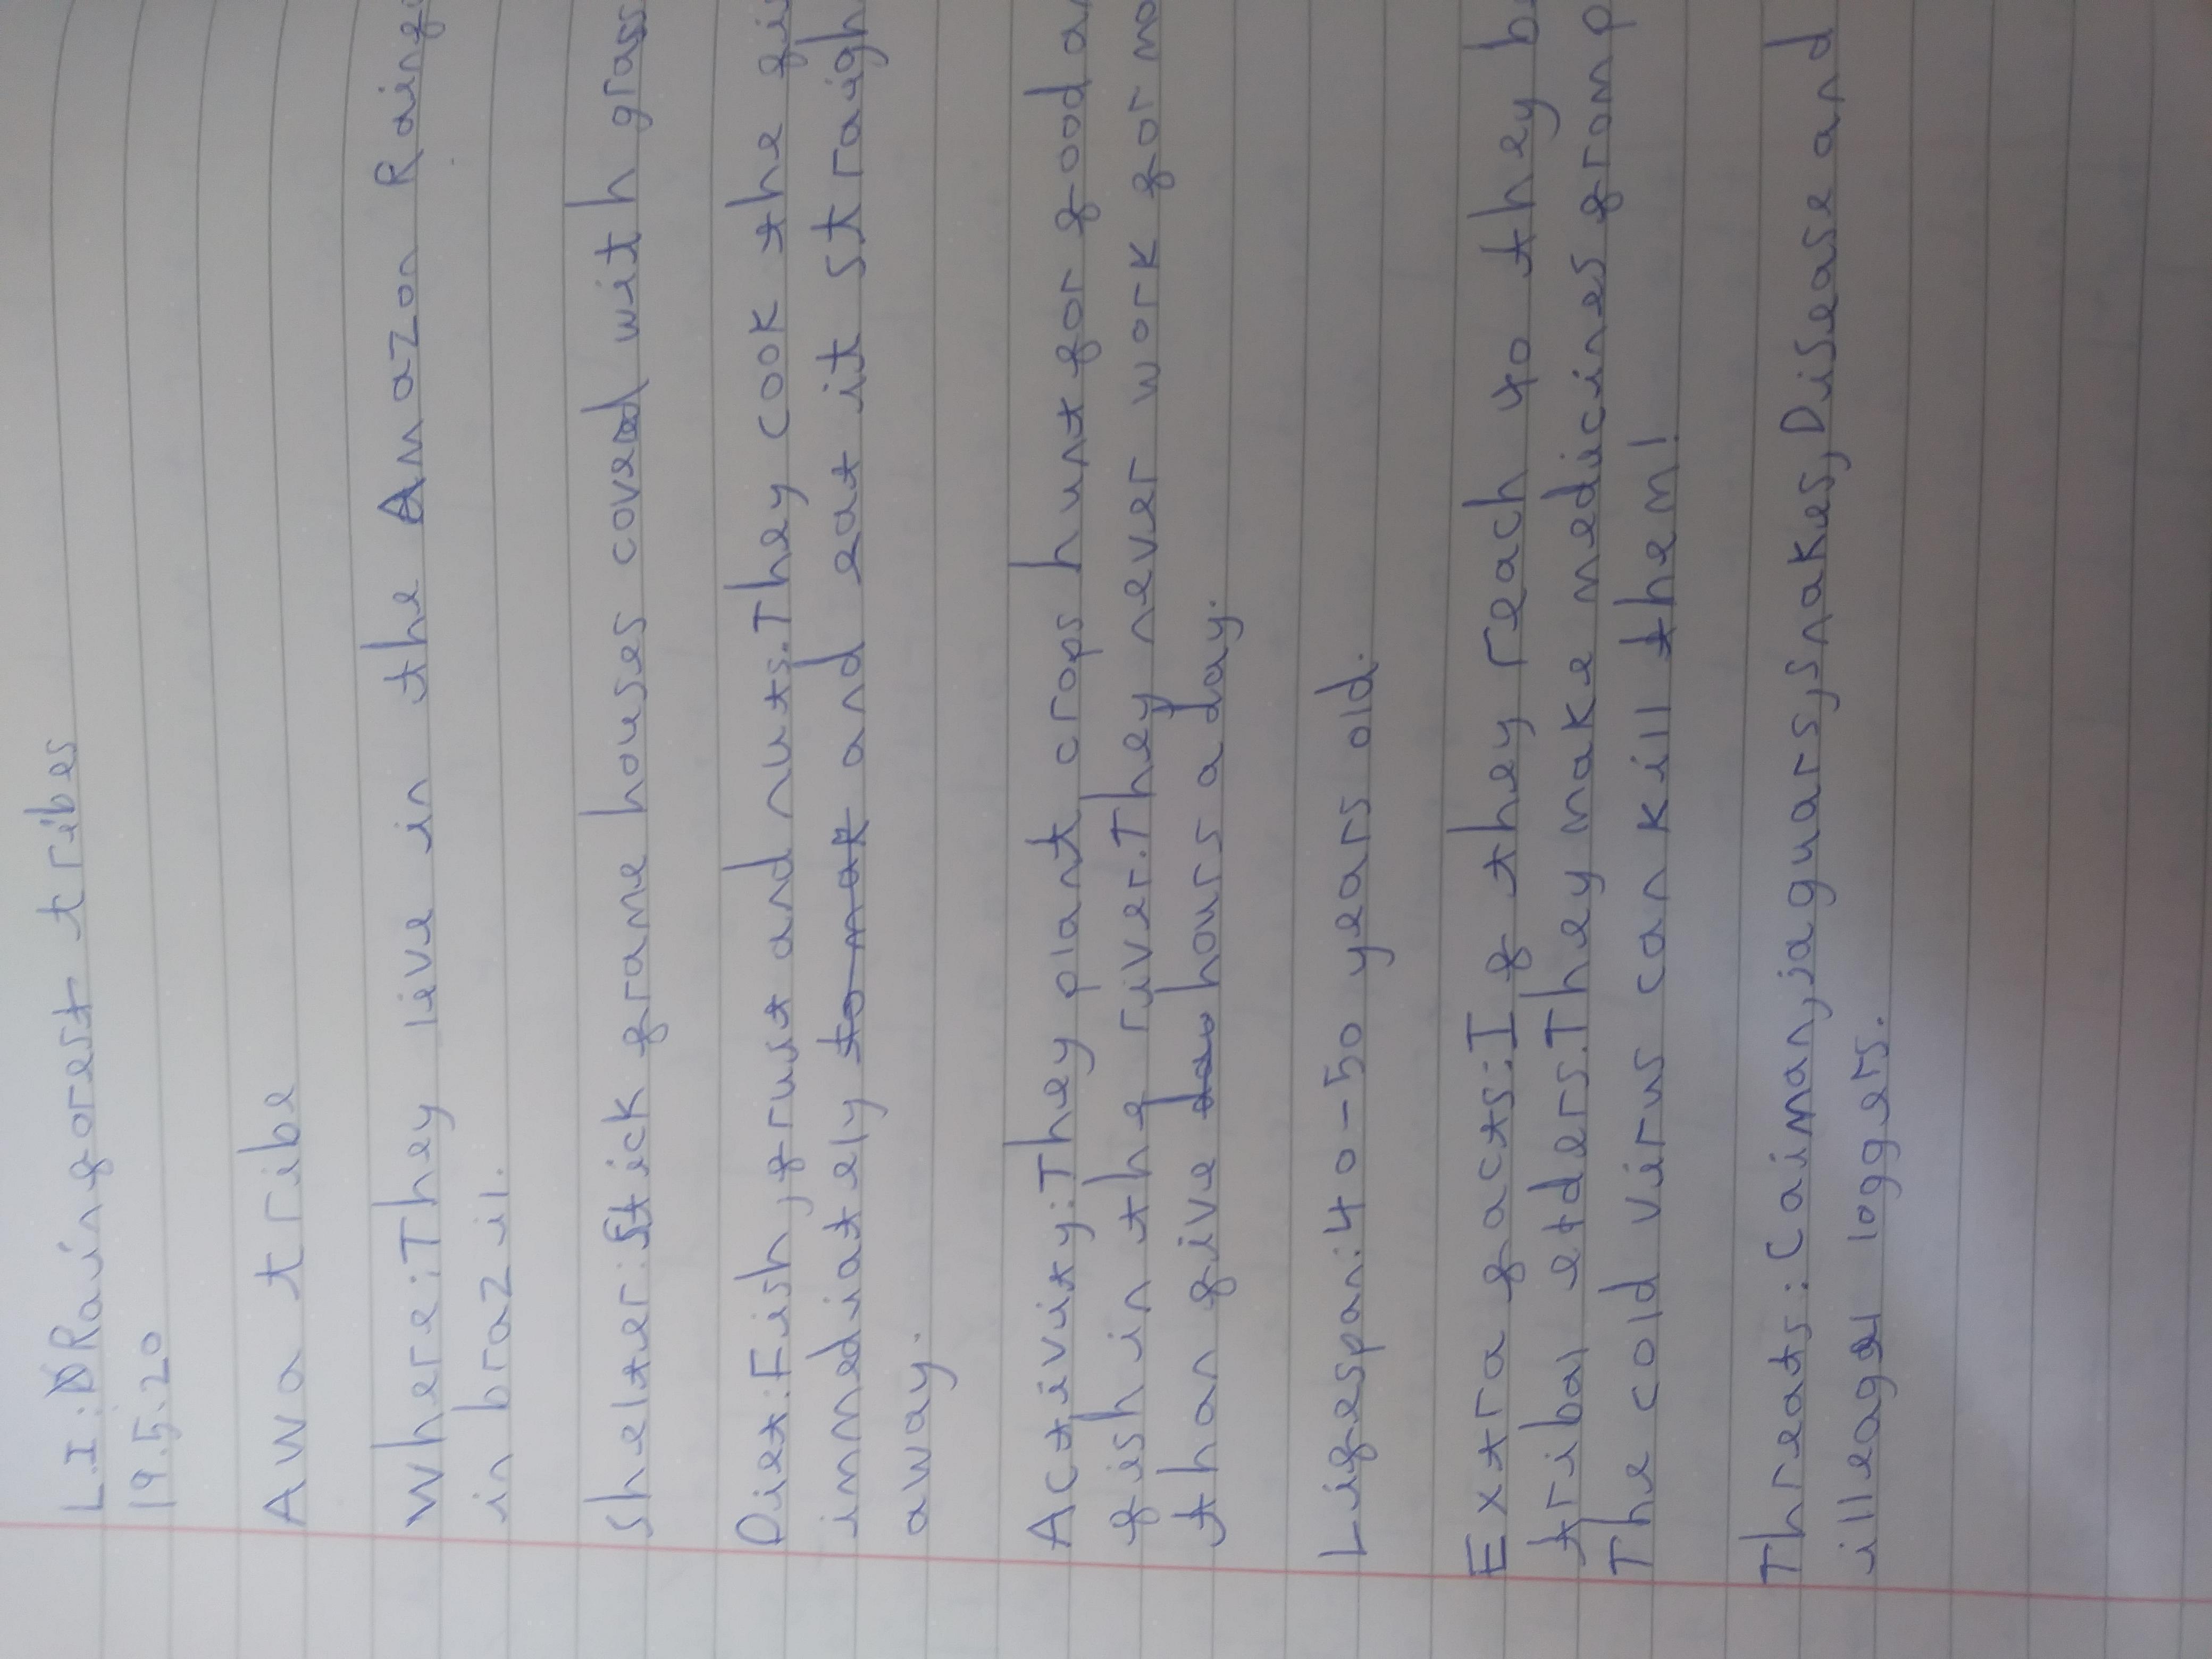 L.I: Rainforest tribes
19.5.20
Awa tribe
Where: They live in the Amazon Rainf
in brazil.
Shelter: Stick frame houses coverd with grass
Diet: Fish, fruit and nuts. They cook the
immediately to mak and eat it straigh
away.
Activity: They plant crops hunt for food an
fish in the river. They never work for mo
than five hours a day.
Lifespan: 40-50 years old.
Extra facts: If they reach 40 they b
tribal elders. They make medicines from p
The cold virus can kill them!
Threats: Caiman, jaguars, snakes, Disease and
illeagel loggers.